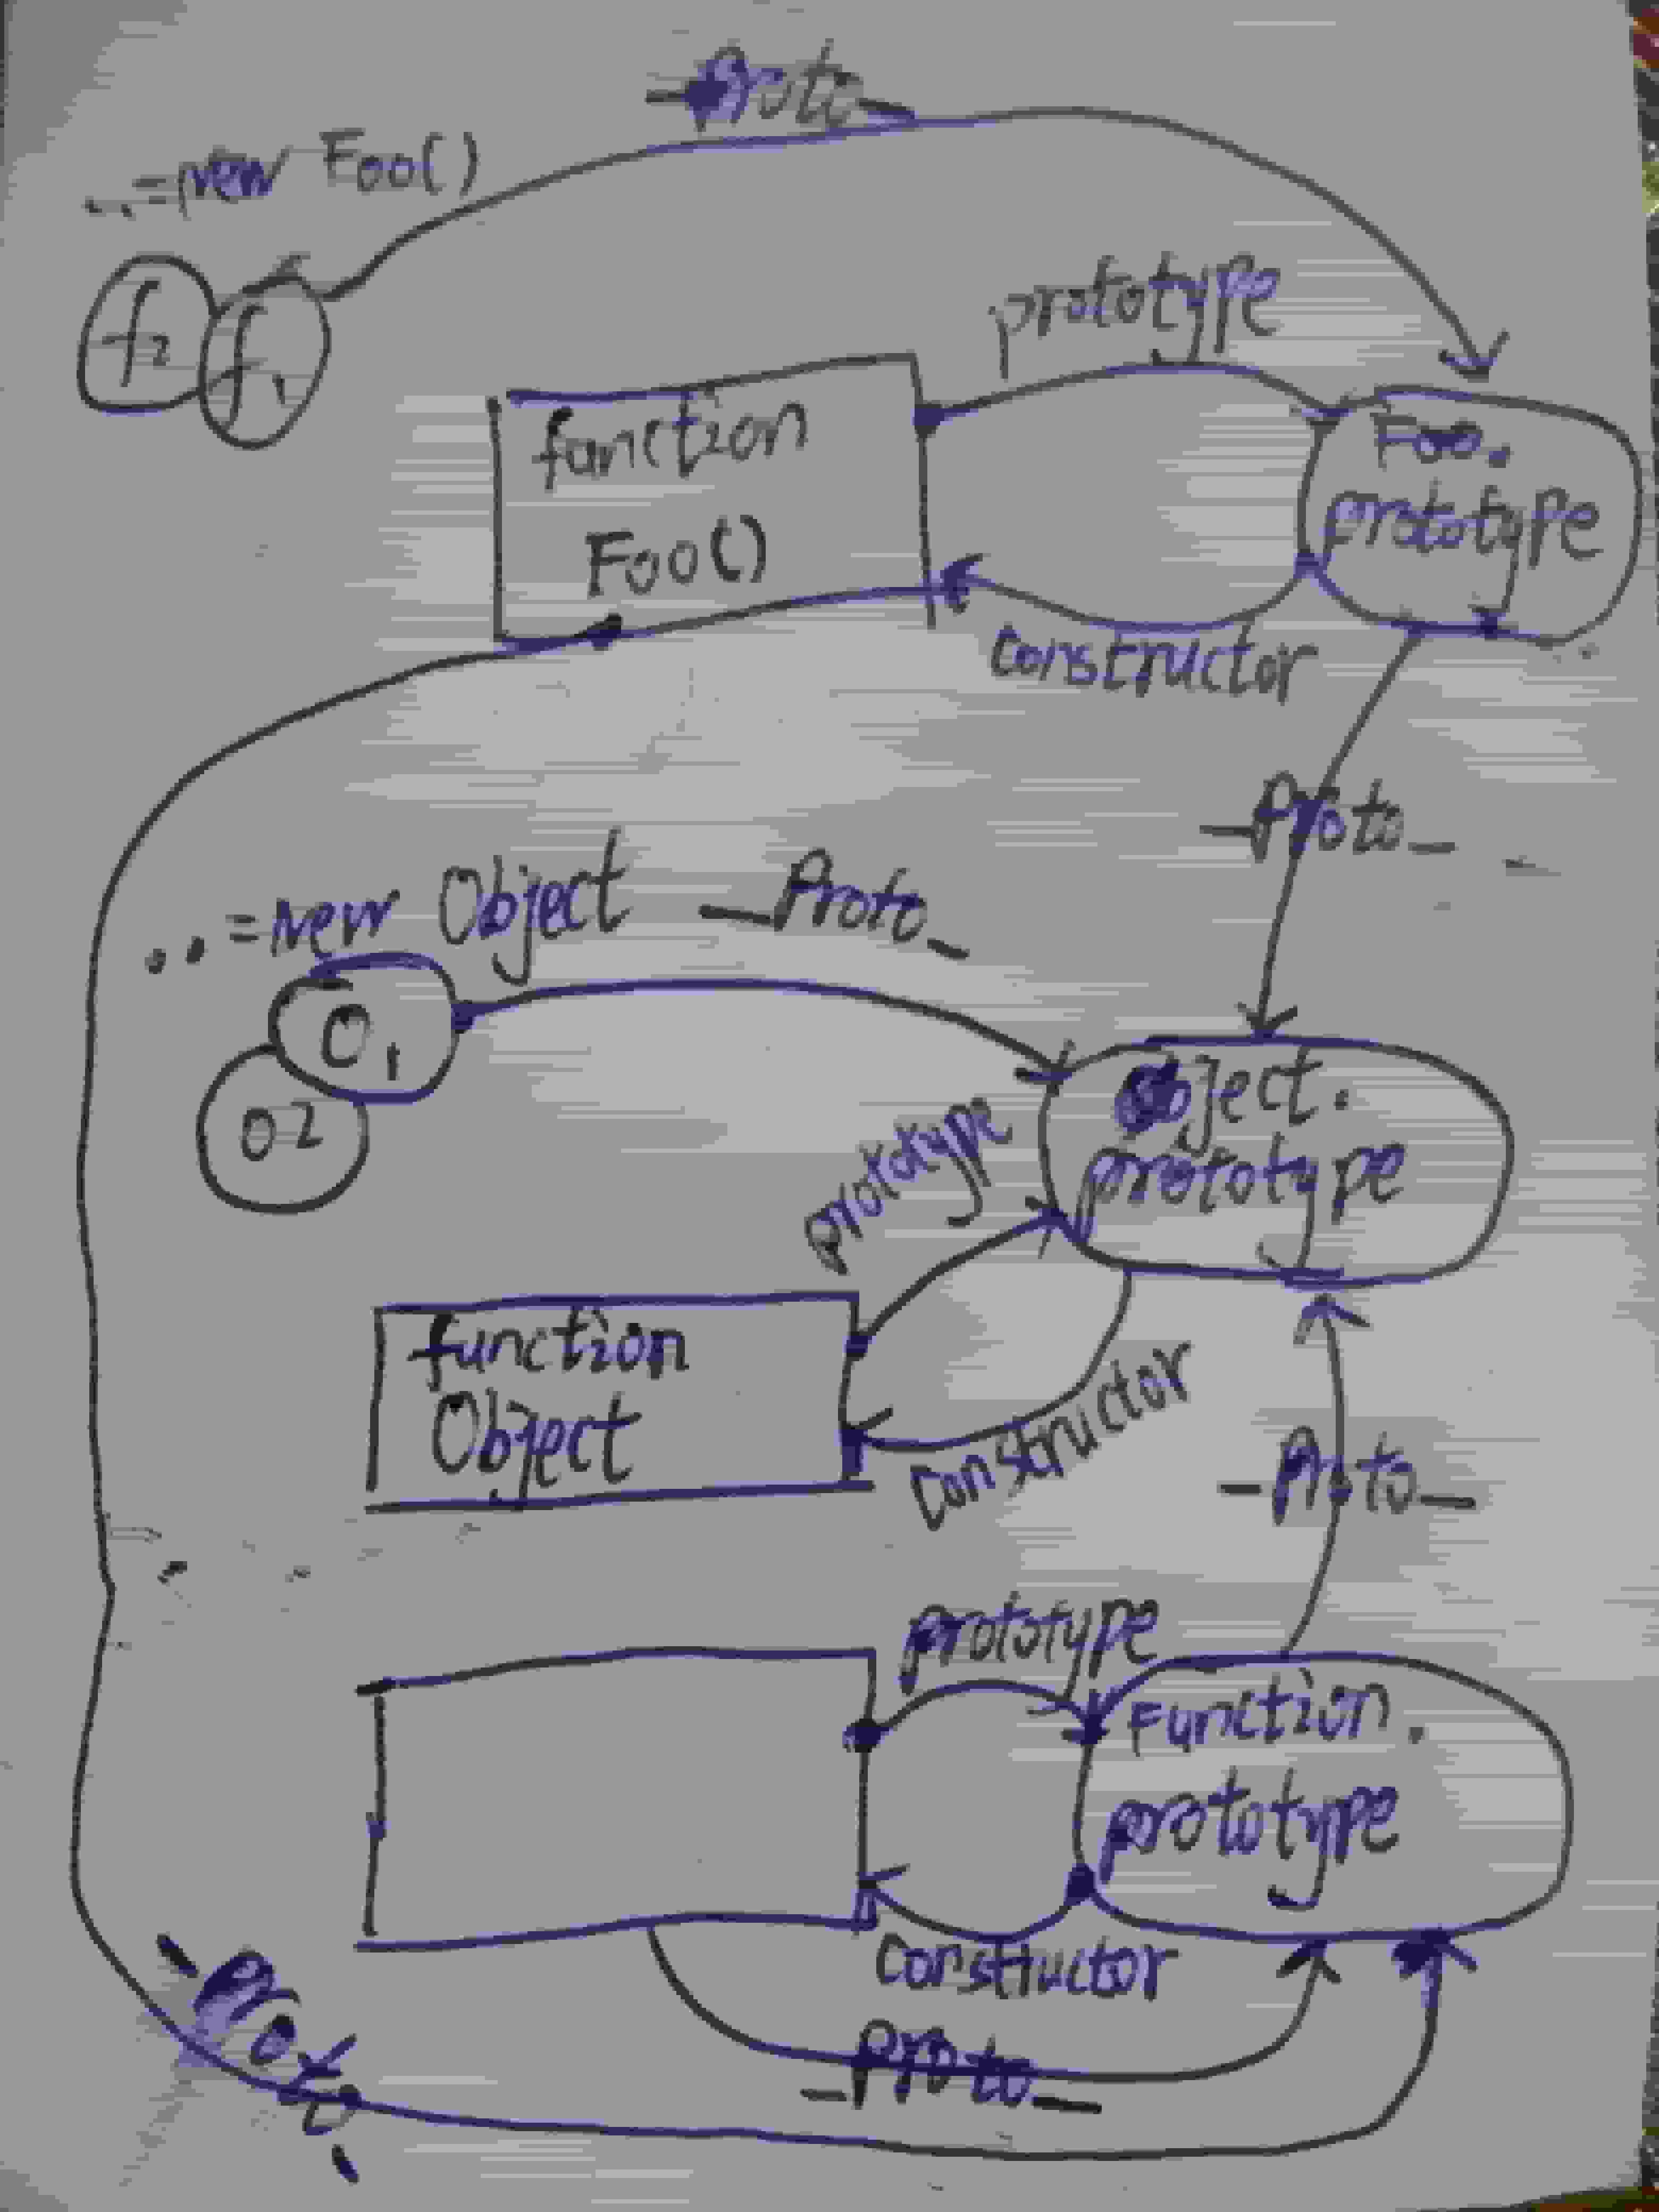 _Proto_
..=new Foo()
f2
f1
prototype
function
Foo()
Foo.
prototype
constructor
_Proto_
..=New Object
_Proto_
O1
O2
Object.
prototype
prototype
function
Object
constructor
_Proto_
prototype
Function.
prototype
constructor
_Proto_
_Proto_